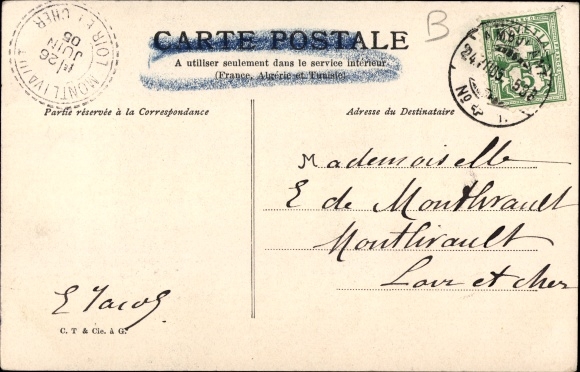 B
CARTE POSTALE
A utiliser seulement dans le service intérieur
(France, Algérie et Tunisie)
MONTLIVAULT
LOIR ET CHER
26
JUIN
05
5
No
1.
Partie réservée à la Correspondance
Adresse du Destinataire
Mademoiselle
E de Monthivault
Monthivault
Loir et cher
E Jacob
C. T & Cie. à G.